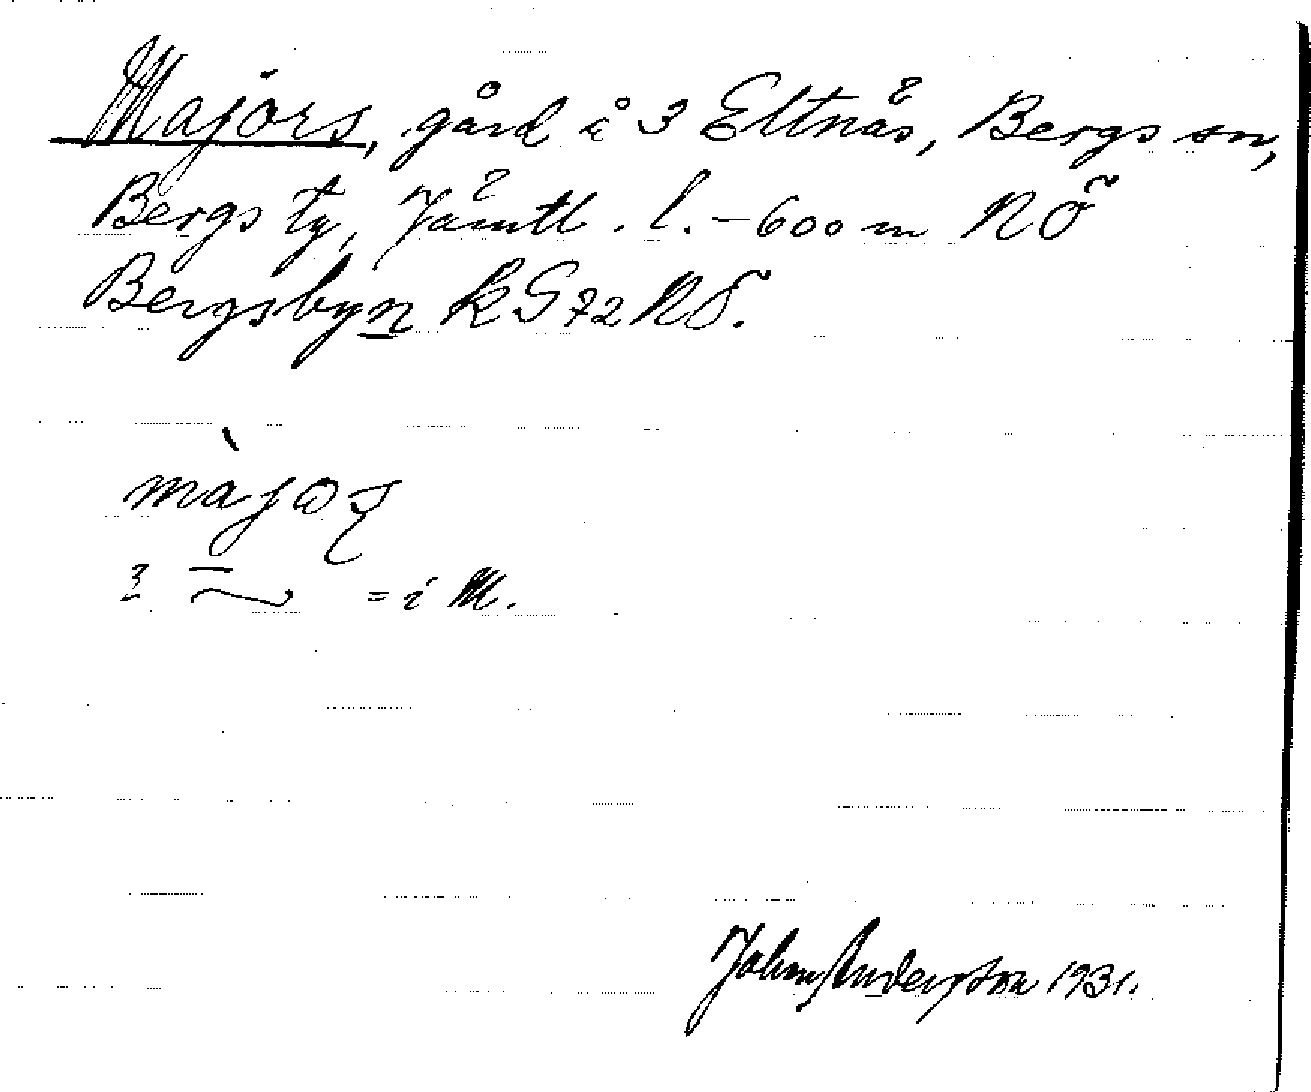 Majors, gård i 3 Eltnäs, Bergs sn,
Bergs tg, Jämtl. l. –600 m NÖ
Bergsbyn k G 72 NÖ.
= i M.
John Andersson 1931.